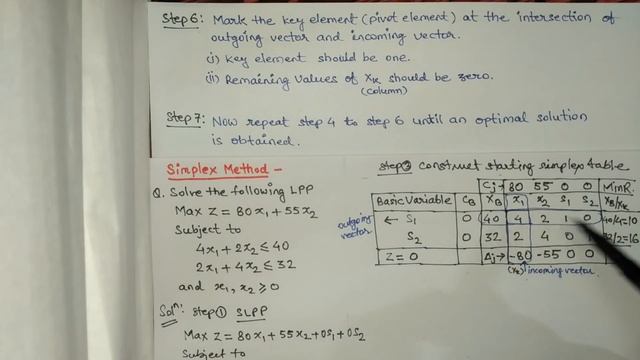 Step 6: Mark the key element (pivot element) at the intersection of
outgoing vector and incoming vector.
(i) Key element should be one.
(ii) Remaining values of XK should be zero.
(column)
Step 7: Now repeat step 4 to step 6 until an optimal solution
is obtained.
Simplex Method -
Q. Solve the following LPP
Max Z = 80x1 + 55x2
Subject to
4x1 + 2x2 ≤ 40
2x1 + 4x2 ≤ 32
and x1, x2 ≥ 0
Soln: Step ① SLPP
Max Z = 80x1 + 55x2 + 0s1 + 0s2
Subject to
Step construct starting simplex table
Cj → 80 55 0 0 Min R.
Basic Variable CB XB x1 x2 s1 s2 XB/XK
outgoing vector
← S1 0 40 4 2 1 0 40/4=10
S2 0 32 2 4 0 32/2=16
Z = 0 Δj → -80 -55 0 0
(XK) ↑ incoming vector